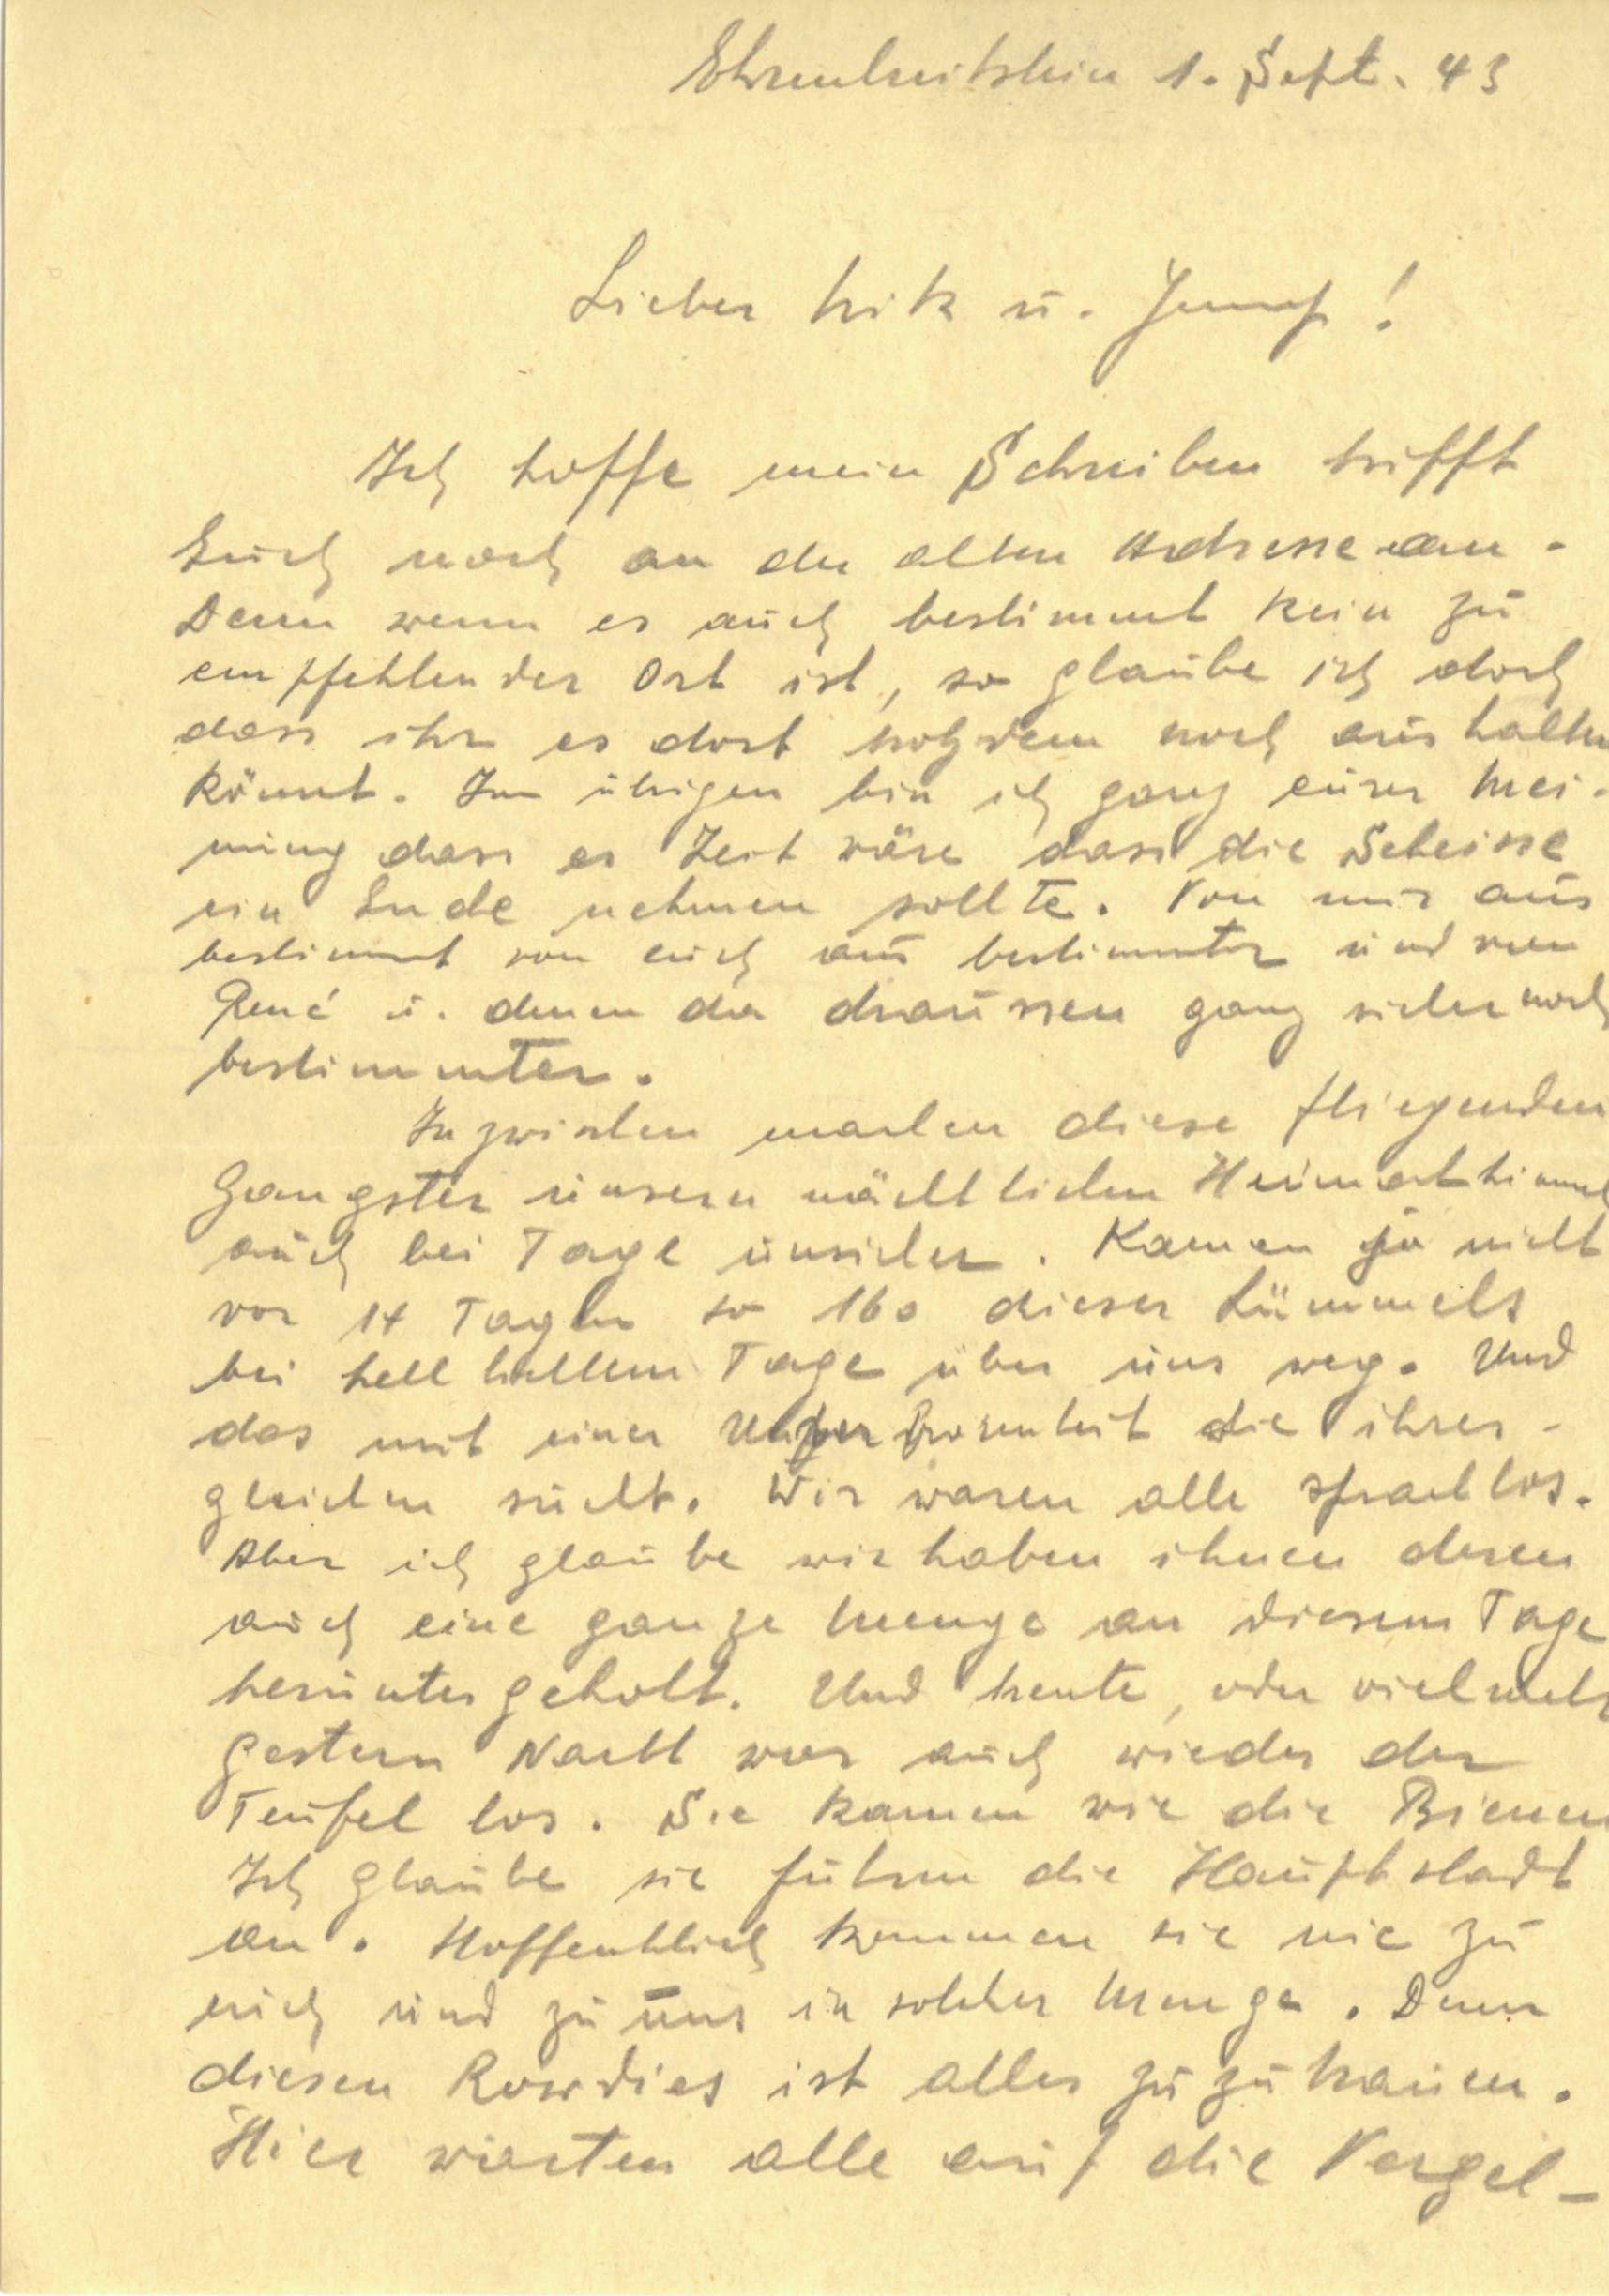 Ehrenbreitstein 1. Sept. 43
Lieber u. !
Ich hoffe mein Schreiben trifft
Euch noch an der alten Adresse an.
Denn wenn es auch bestimmt kein zu
empfehlender Ort ist, so glaube ich doch
dass ihr es dort trotzdem noch aushalten
könnt. Im übrigen bin ich ganz eurer Mei-
nung dass es Zeit wäre dass die Scheisse
ein Ende nehmen sollte. Von mir aus
bestimmt von euch aus bestimmter und von
René u. denen da draussen ganz sicher noch
bestimmter.
Inzwischen machen diese fliegenden
Gangster unsern nächtlichen Heimathimmel
auch bei Tage unsicher. Kamen ja nicht
vor 14 Tagen so 160 dieser Lümmels
bei hellhellem Tage über uns weg. Und
das mit einer Unverfrorenheit die ihres-
gleichen sucht. Wir waren alle sprachlos.
Aber ich glaube wir haben ihnen deren
auch eine ganze Menge an diesem Tage
heruntergeholt. Und heute, oder vielmehr
gestern Nacht war auch wieder der
Teufel los. Sie kamen wie die Bienen
Ich glaube sie fuhren die Hauptstadt
an. Hoffentlich kommen sie nie zu
euch und zu uns in solcher Menge. Denn
diesen Rowdies ist alles zuzutrauen.
Hier warten alle auf die Vergel-